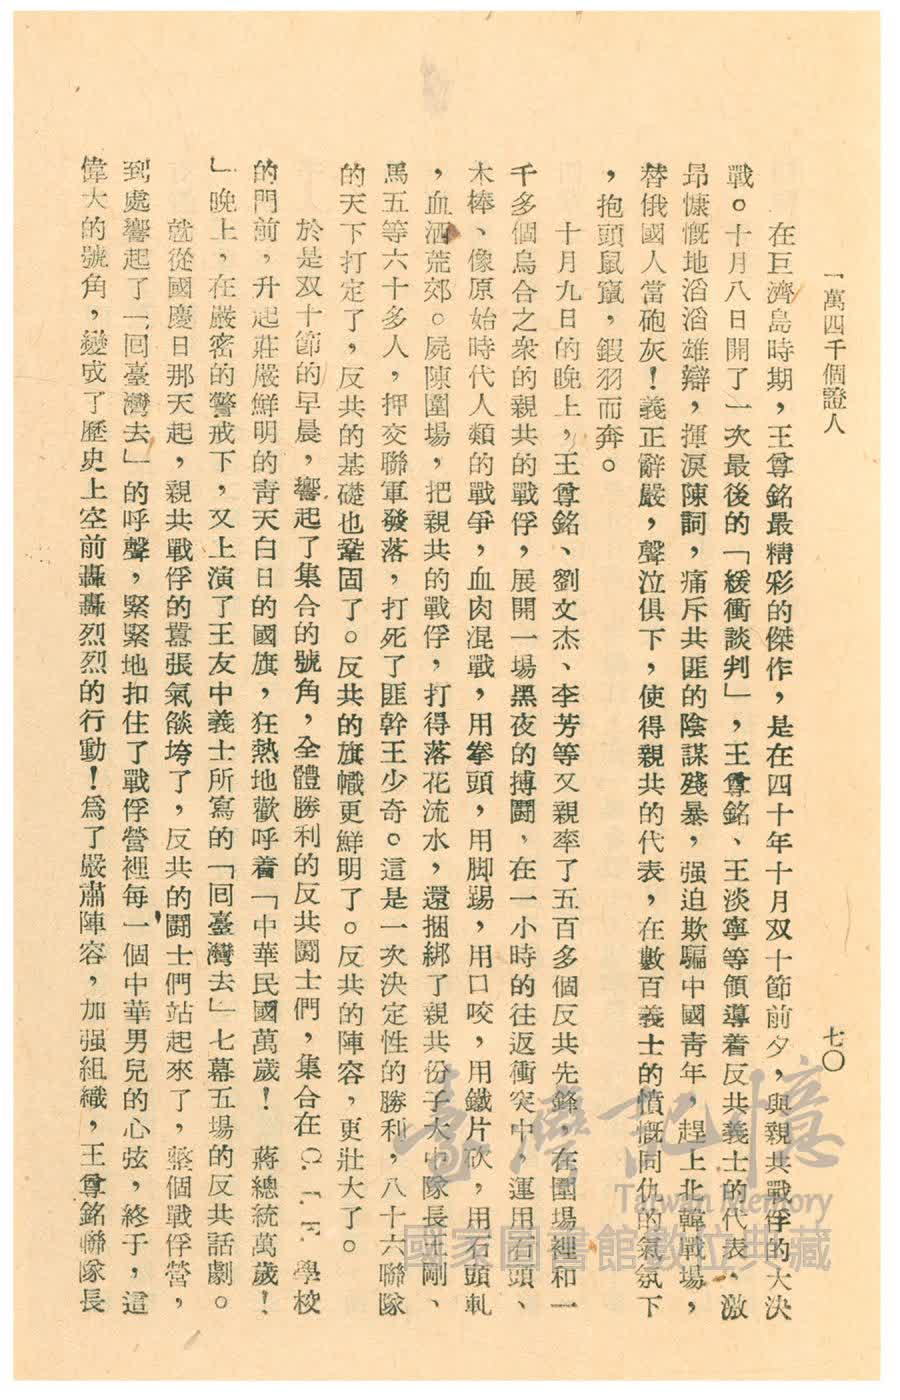 一萬四千個證人
七〇
在巨濟島時期，王尊銘最精彩的傑作，是在四十年十月双十節前夕，與親共戰俘的大決
戰。十月八日開了一次最後的「緩衝談判」，王尊銘、王淡寧等領導着反共義士的代表、激
昂慷慨地滔滔雄辯，揮淚陳詞，痛斥共匪的陰謀殘暴，强迫欺騙中國靑年，趕上北韓戰場，
替俄國人當砲灰！義正辭嚴，聲泣俱下，使得親共的代表，在數百義士的憤慨同仇的氣氛下
，抱頭鼠竄，鍜羽而奔。
十月九日的晚上，王尊銘、劉文杰、李芳等又親率了五百多個反共先鋒，在圍場裡和一
千多個烏合之衆的親共的戰俘，展開一場黑夜的搏鬪，在一小時的往返衝突中，運用石頭、
木棒、像原始時代人類的戰爭，血肉混戰，用拳頭，用脚踢，用口咬，用鐵片砍，用石頭軋
，血洒荒郊。屍陳圍場，把親共的戰俘，打得落花流水，還捆綁了親共份子大中隊長王剛、
馬五等六十多人，押交聯軍發落，打死了匪幹王少奇。這是一次決定性的勝利，八十六聯隊
的天下打定了，反共的基礎也鞏固了。反共的旗幟更鮮明了。反共的陣容，更壯大了。
於是双十節的早晨，響起了集合的號角，全體勝利的反共鬪士們，集合在C.I.E.學校
的門前，升起莊嚴鮮明的靑天白日的國旗，狂熱地歡呼着「中華民國萬歲！　蔣總統萬歲！
」晚上，在嚴密的警戒下，又上演了王友中義士所寫的「回臺灣去」七幕五場的反共話劇。
就從國慶日那天起，親共戰俘的囂張氣燄垮了，反共的鬪士們站起來了，整個戰俘營，
到處響起了「回臺灣去」的呼聲，緊緊地扣住了戰俘營裡每一個中華男兒的心弦，終于，這
偉大的號角，變成了歷史上空前轟轟烈烈的行動！爲了嚴肅陣容，加强組織，王尊銘聯隊長
臺灣記憶
Taiwan Memory
國家圖書館數位典藏